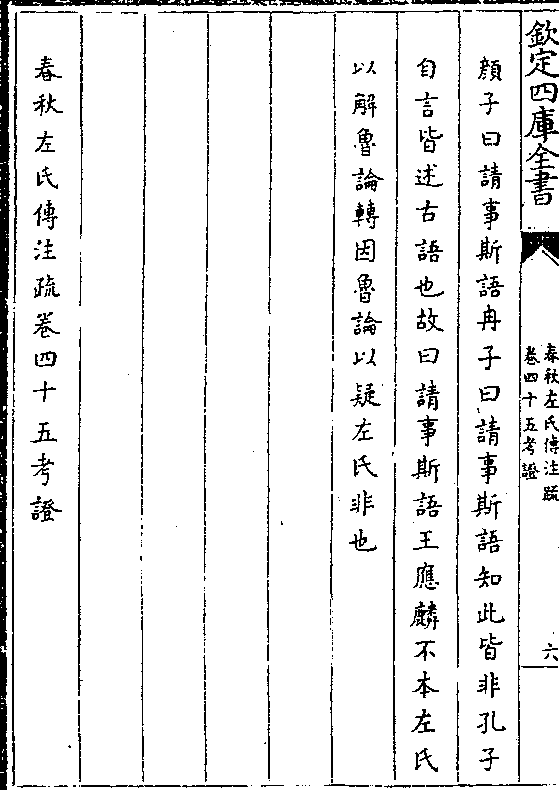 欽定四庫全書
春秋左氏傳注疏
卷四十五考證
六
顔子曰請事斯語冉子曰請事斯語知此皆非孔子
自言皆述古語也故曰請事斯語王應麟不本左氏
以解魯論轉因魯論以疑左氏非也
春秋左氏傳注疏卷四十五考證